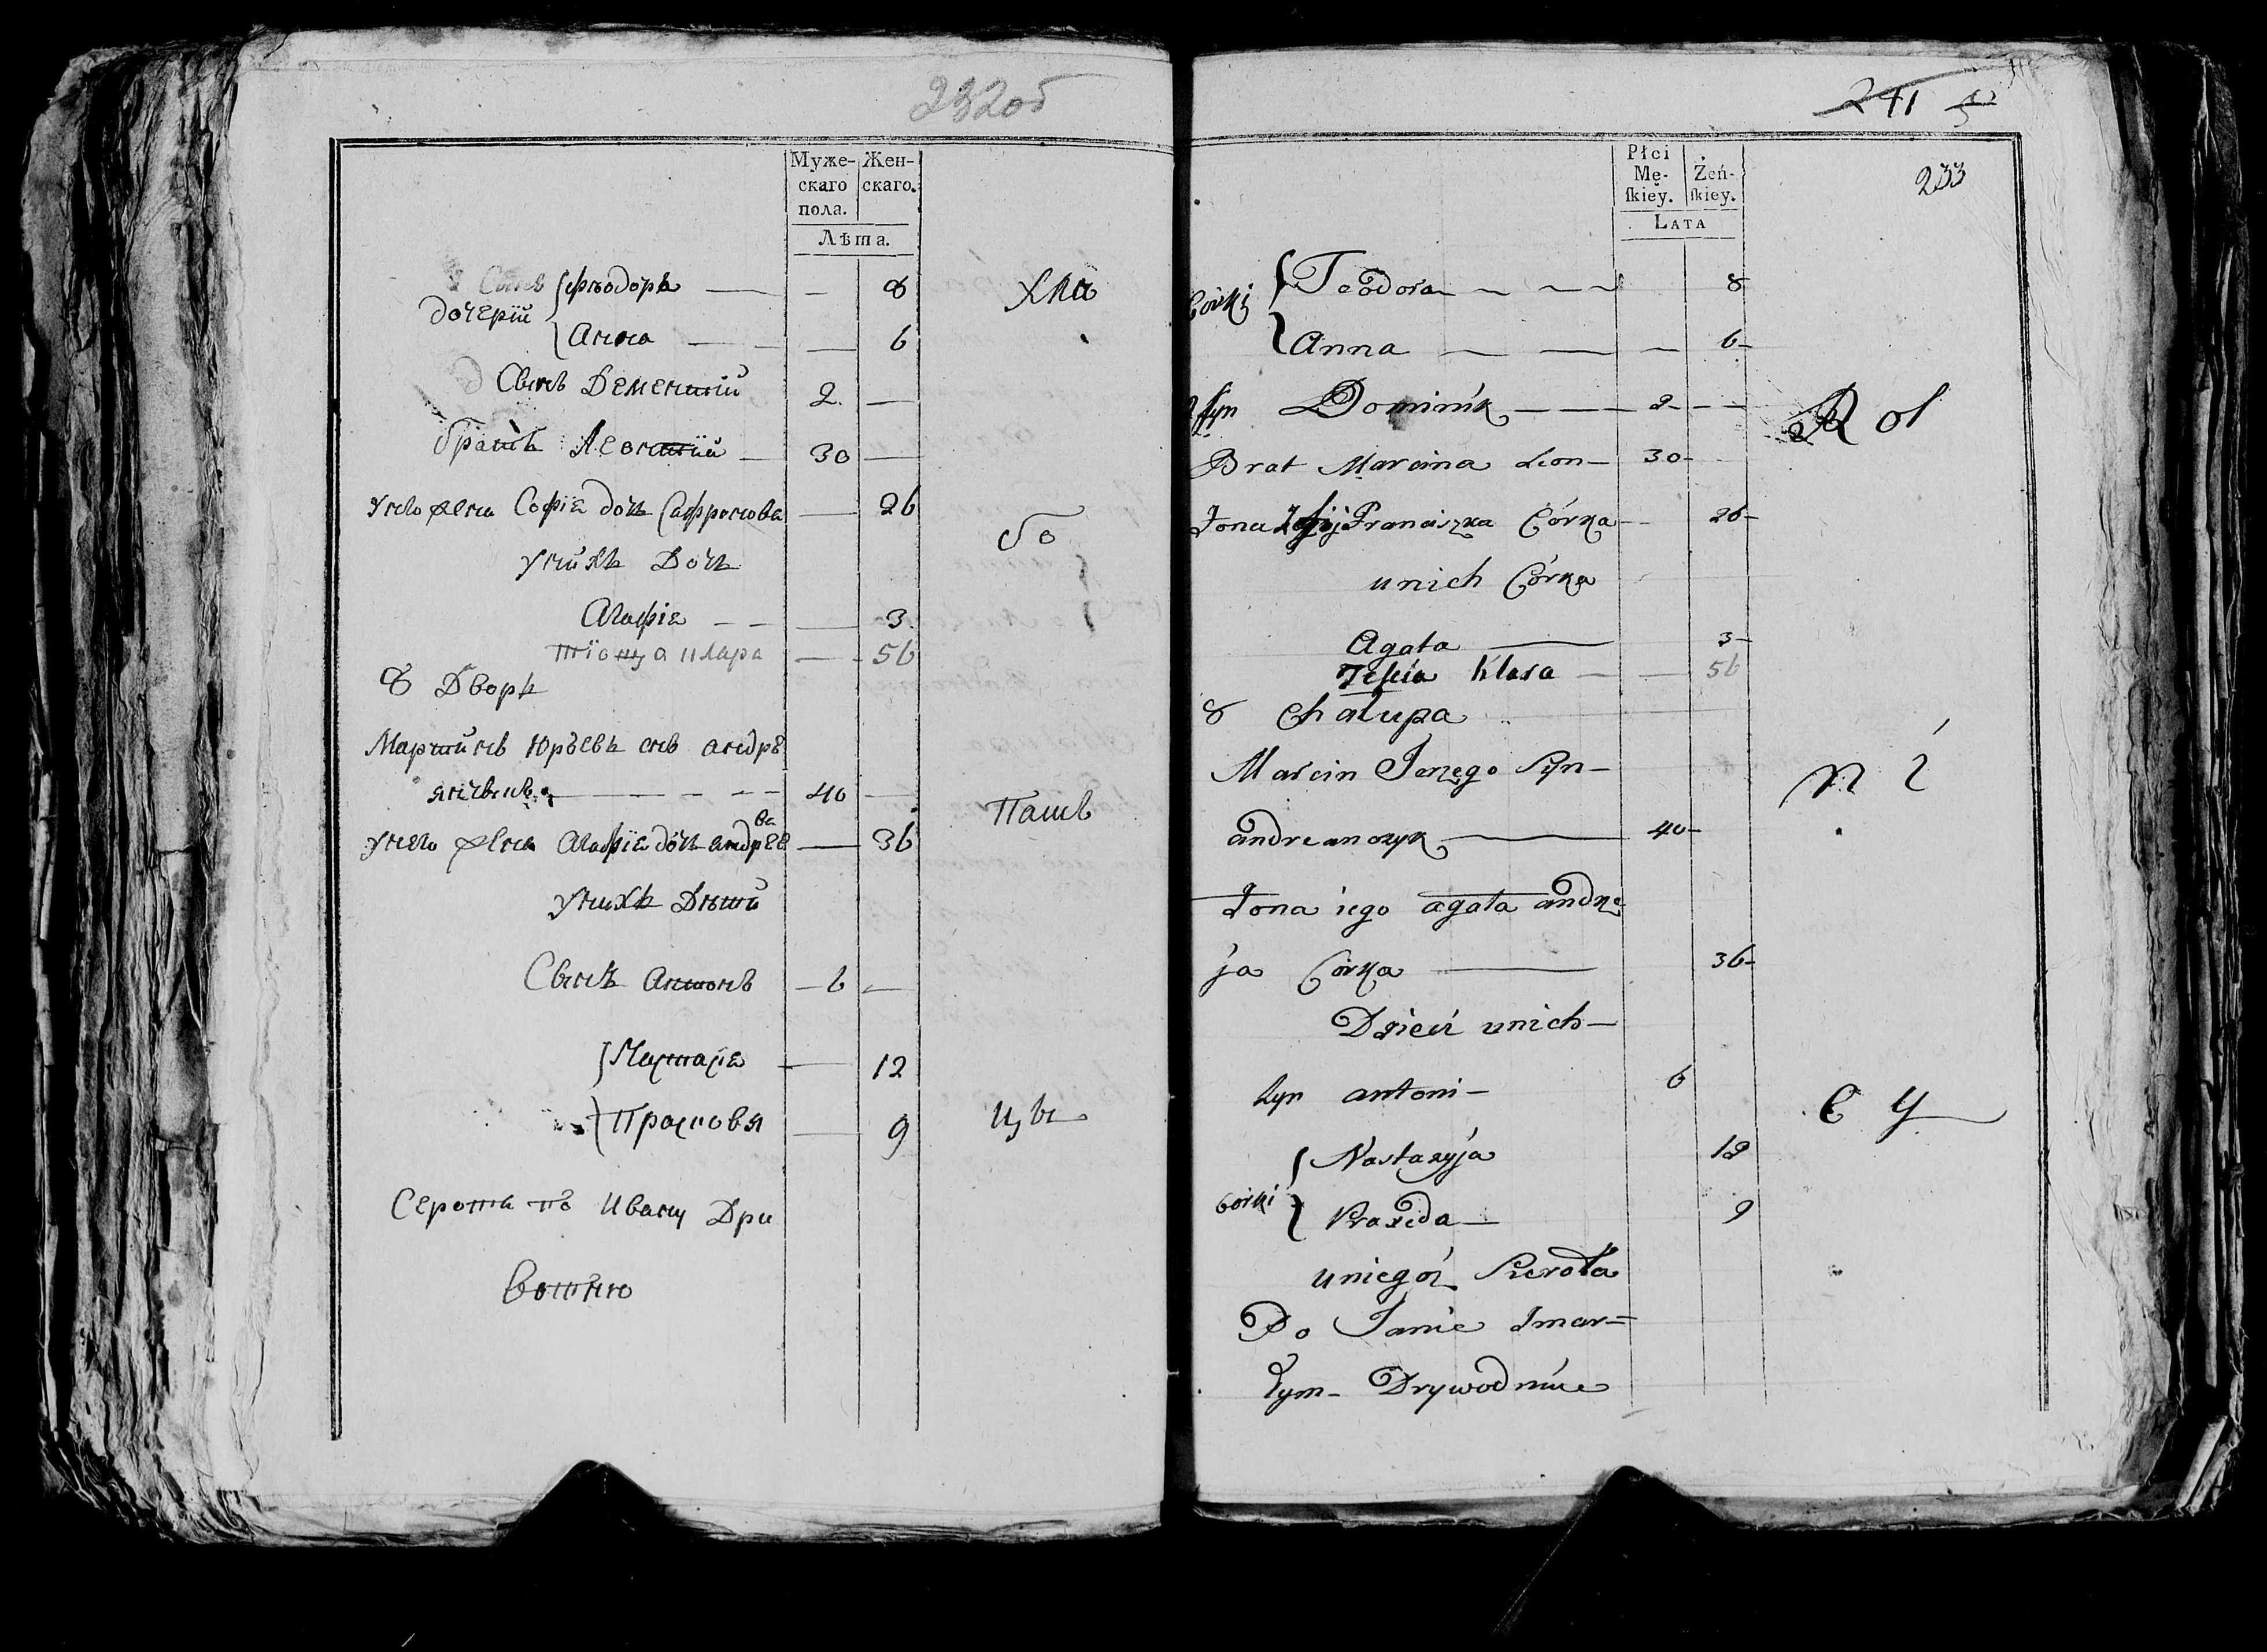 232об
Муже-
скаго
пола.
Жен-
скаго.
Лѣта.
дочерїи
Фѣодора — — 8
Анна — — 6
Сынъ Дементий 2. —
братъ Леонтїй — 30 —
Унего жена Софiя дочь Сафронова — 26
Унихъ Дочь
Агафiя — — 3.
тїоща клара — 56
8 Дворъ
Мартинъ Юрьевъ снъ андре
янчикъ — 40 —
Унего жена Агафiя дочь андрѣева — 36
Унихъ Дѣти
Сынъ Антонъ — 6 —
Настасiя — 12
Прасковя — 9
Сероти по Ивану Дри
вотню
Хли
бо
Пашъ
цы
241
233
Płci
Mę-
ſkiey.
Żeń-
ſkiey.
LATA
Corki
Teodora — — — 8
Anna — — — 6
Syn Dominik — 2 —
Brat Marcina Leon — 30 —
Żona Zofija Franciszka Córka — 26 —
unich Córka
Agata — 3 —
Teścia Klara — — 56
8 Chalupa
Marcin Jerzego Syn —
andreanczyk — 40 —
Żona iego agata andrze
ja Corka — 36 —
Dzieci unich —
Syn antoni — 6
Corki
Nastazyja 12
Praxeda — 9
uniegoż Sierota
Po Janie Zmar=
łym — Drywodniue
Rol
n i
c y